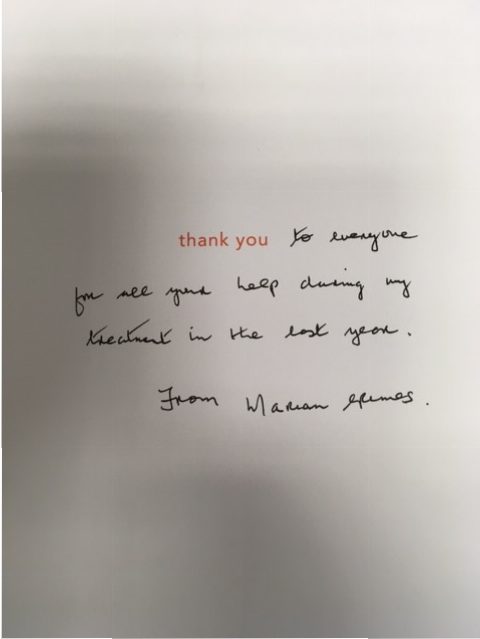 thank you to everyone
for all your help during my
treatment in the last year.
From Marian Grimes.